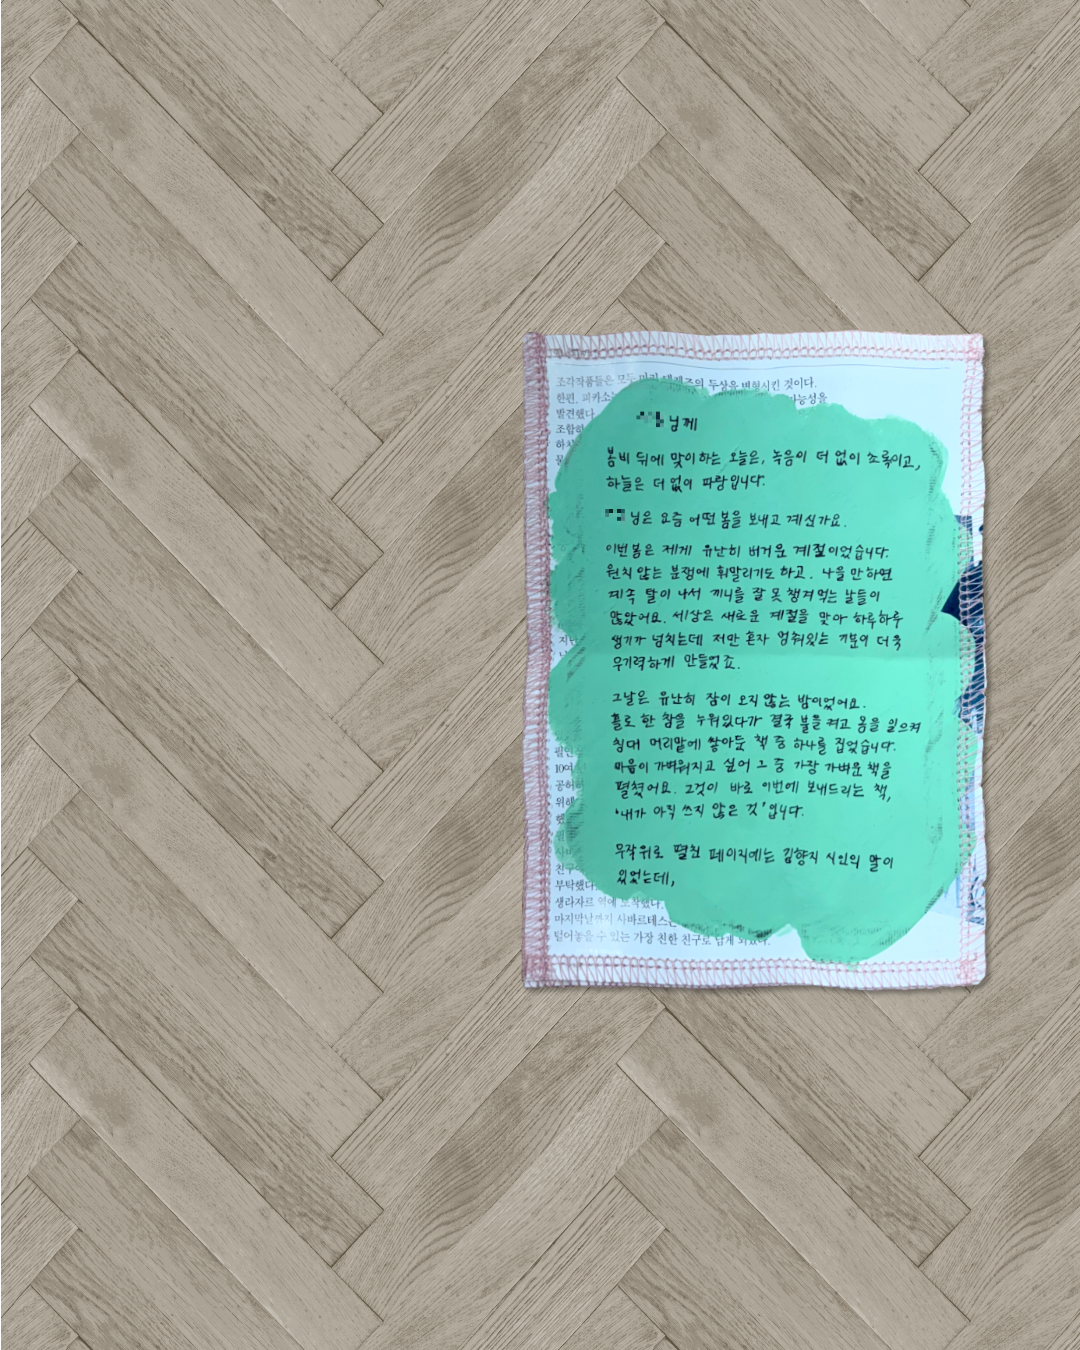 조각작품들은 모두 마리 테레즈의 두상을 변형시킨 것이다.
한편, 피카소는
가능성을
발견했다.
님께
봄비 뒤에 맞이하는 오늘은, 녹음이 더 없이 초록이고,
하늘은 더 없이 파랑입니다.
님은 요즘 어떤 봄을 보내고 계신가요.
이번 봄은 제게 유난히 버거운 계절이었습니다.
원치 않는 분쟁에 휘말리기도 하고, 나을 만 하면
계속 탈이 나서 끼니를 잘 못 챙겨 먹는 날들이
많았어요. 세상은 새로운 계절을 맞아 하루하루
생기가 넘치는데 저만 혼자 멈춰있는 기분이 더욱
무기력하게 만들었죠.
그날은 유난히 잠이 오지 않는 밤이었어요.
홀로 한 참을 누워있다가 결국 불을 켜고 몸을 일으켜
침대 머리맡에 쌓아둔 책 중 하나를 집었습니다.
마음이 가벼워지고 싶어 그 중 가장 가벼운 책을
펼쳤어요. 그것이 바로 이번에 보내드리는 책,
'내가 아직 쓰지 않은 것'입니다.
무작위로 펼친 페이지에는 김향지 시인의 말이
있었는데,
친구
부탁했다.
생라자르 역에 도착했다.
마지막날까지 사바르테스는
털어놓을 수 있는 가장 친한 친구로 남게 되었다.